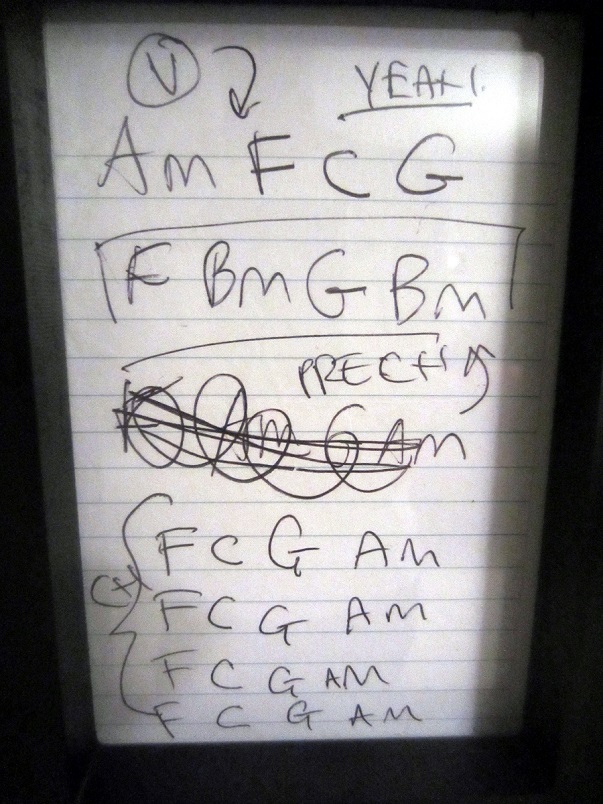 V YEAH.
Am F C G
F Bm G Bm
PRECH
F Am G Am
CH
F C G Am
F C G Am
F C G AM
F C G AM